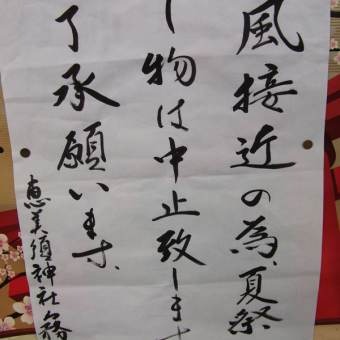 風接近の為、夏祭
し物は中止致します
了承願います、
恵美須神社務